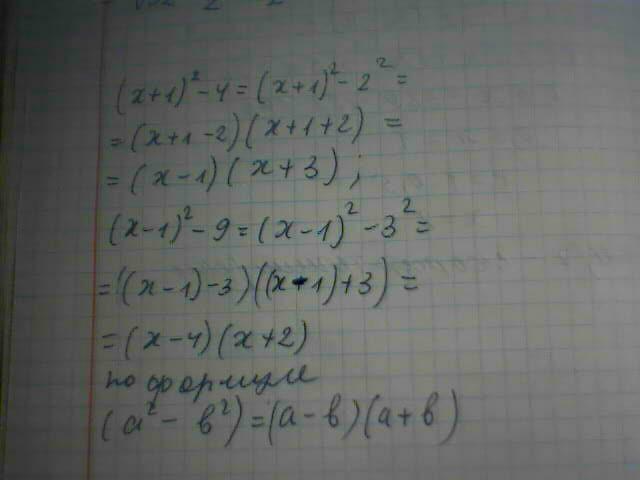 (x+1)²-4=(x+1)²-2²=
=(x+1-2)(x+1+2)=
=(x-1)(x+3);
(x-1)²-9=(x-1)²-3²=
=((x-1)-3)((x-1)+3)=
=(x-4)(x+2)
по формуле
(a²-в²)=(a-в)(a+в)